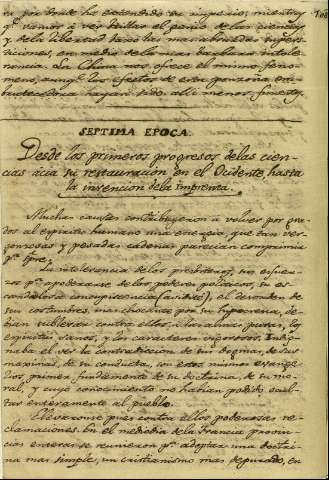 ra por donde ha extendido su imperio; mientras
qe. vemos á ver brillar el genio de las ciencias
y de la libertad
ciones, en medio de la mas barbara intole-
rancia. La China nos ofrece el mismo fenó-
meno, aunqe. los efectos de esta ponzoña em-
brutecedora hayan sido allí menos funestos.
SEPTIMA EPOCA.
Desde los primeros progresos de las cien-
cias acia su restauracion en el Ocidente, hasta
la invencion de la Imprenta.
Muchas causas contribuyeron á volver por gra-
dos al espíritu humano una energia, que tan ver-
gonzosas y pesadas cadenas parecian comprimir
pa. spre.
La intolerencia de los presbiteros, sus esfuer-
zos pa. apoderarse de los poderes políticos, su es-
candalosa concupiscencia (avidez), el desorden de
sus costumbres, mas chocantes por su hipocrecia, de-
bian sublevar contra ellos á las almas puras, los
espíritus sanos, y los caracteres vigorosos. Indig-
naba el ver la contradiccion de sus dogmas, de sus
maximas, de su conducta, con estos mismos evange-
lios primer fundamento de su doctrina, de su mo-
ral, y cuyo conocimiento no habian podido ocul-
tar enteramente al pueblo.
Elevaronse pues contra ellos poderosas re-
clamaciones. En el mediodia de la Francia provin-
cias enteras se reunieron pa. adoptar una doctri-
na mas simple, un cristianismo mas depurado, en